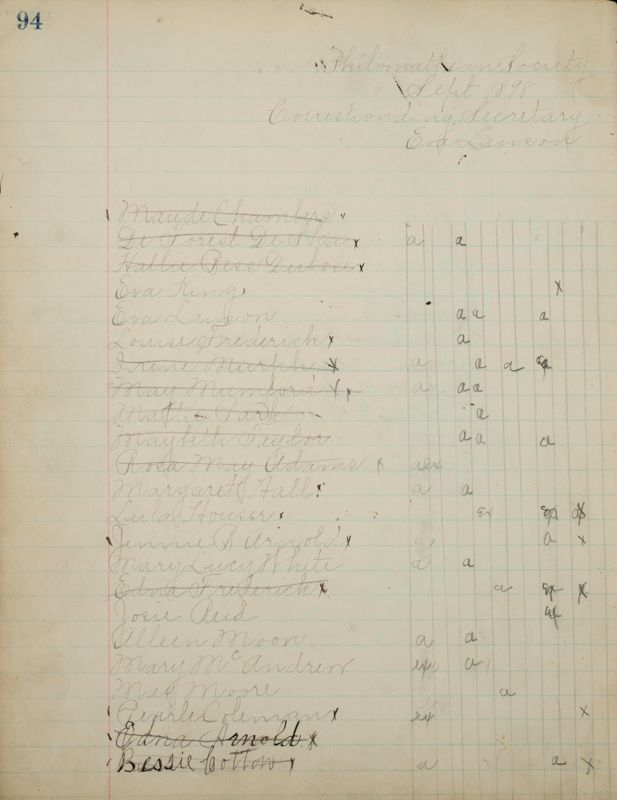 94
Philomathean Society
Sept 1898
Corresponding Secretary
Eva Lawson
Maude Chambers
De Forest De a a
Hallie Bess Dubose x
Eva King x
Eva Lawson a a a
Louise Frederick x a
Irene Murphy x a a a
May Mumford x x a a a
Park a
Maybeth Taylor a a a
Rosa May Adams x
Margaret Hall a a
Lula Houser ex
Jennie B Arnold x a x
Mary Lucy White a a
Edna Frederick x a x
Josie Reid
Alleen Moon a a
Mary McAndrew ex a
May Moore a
Pearle Coleman x ex x
Edna Arnold x
Bessie Cotton x a a x